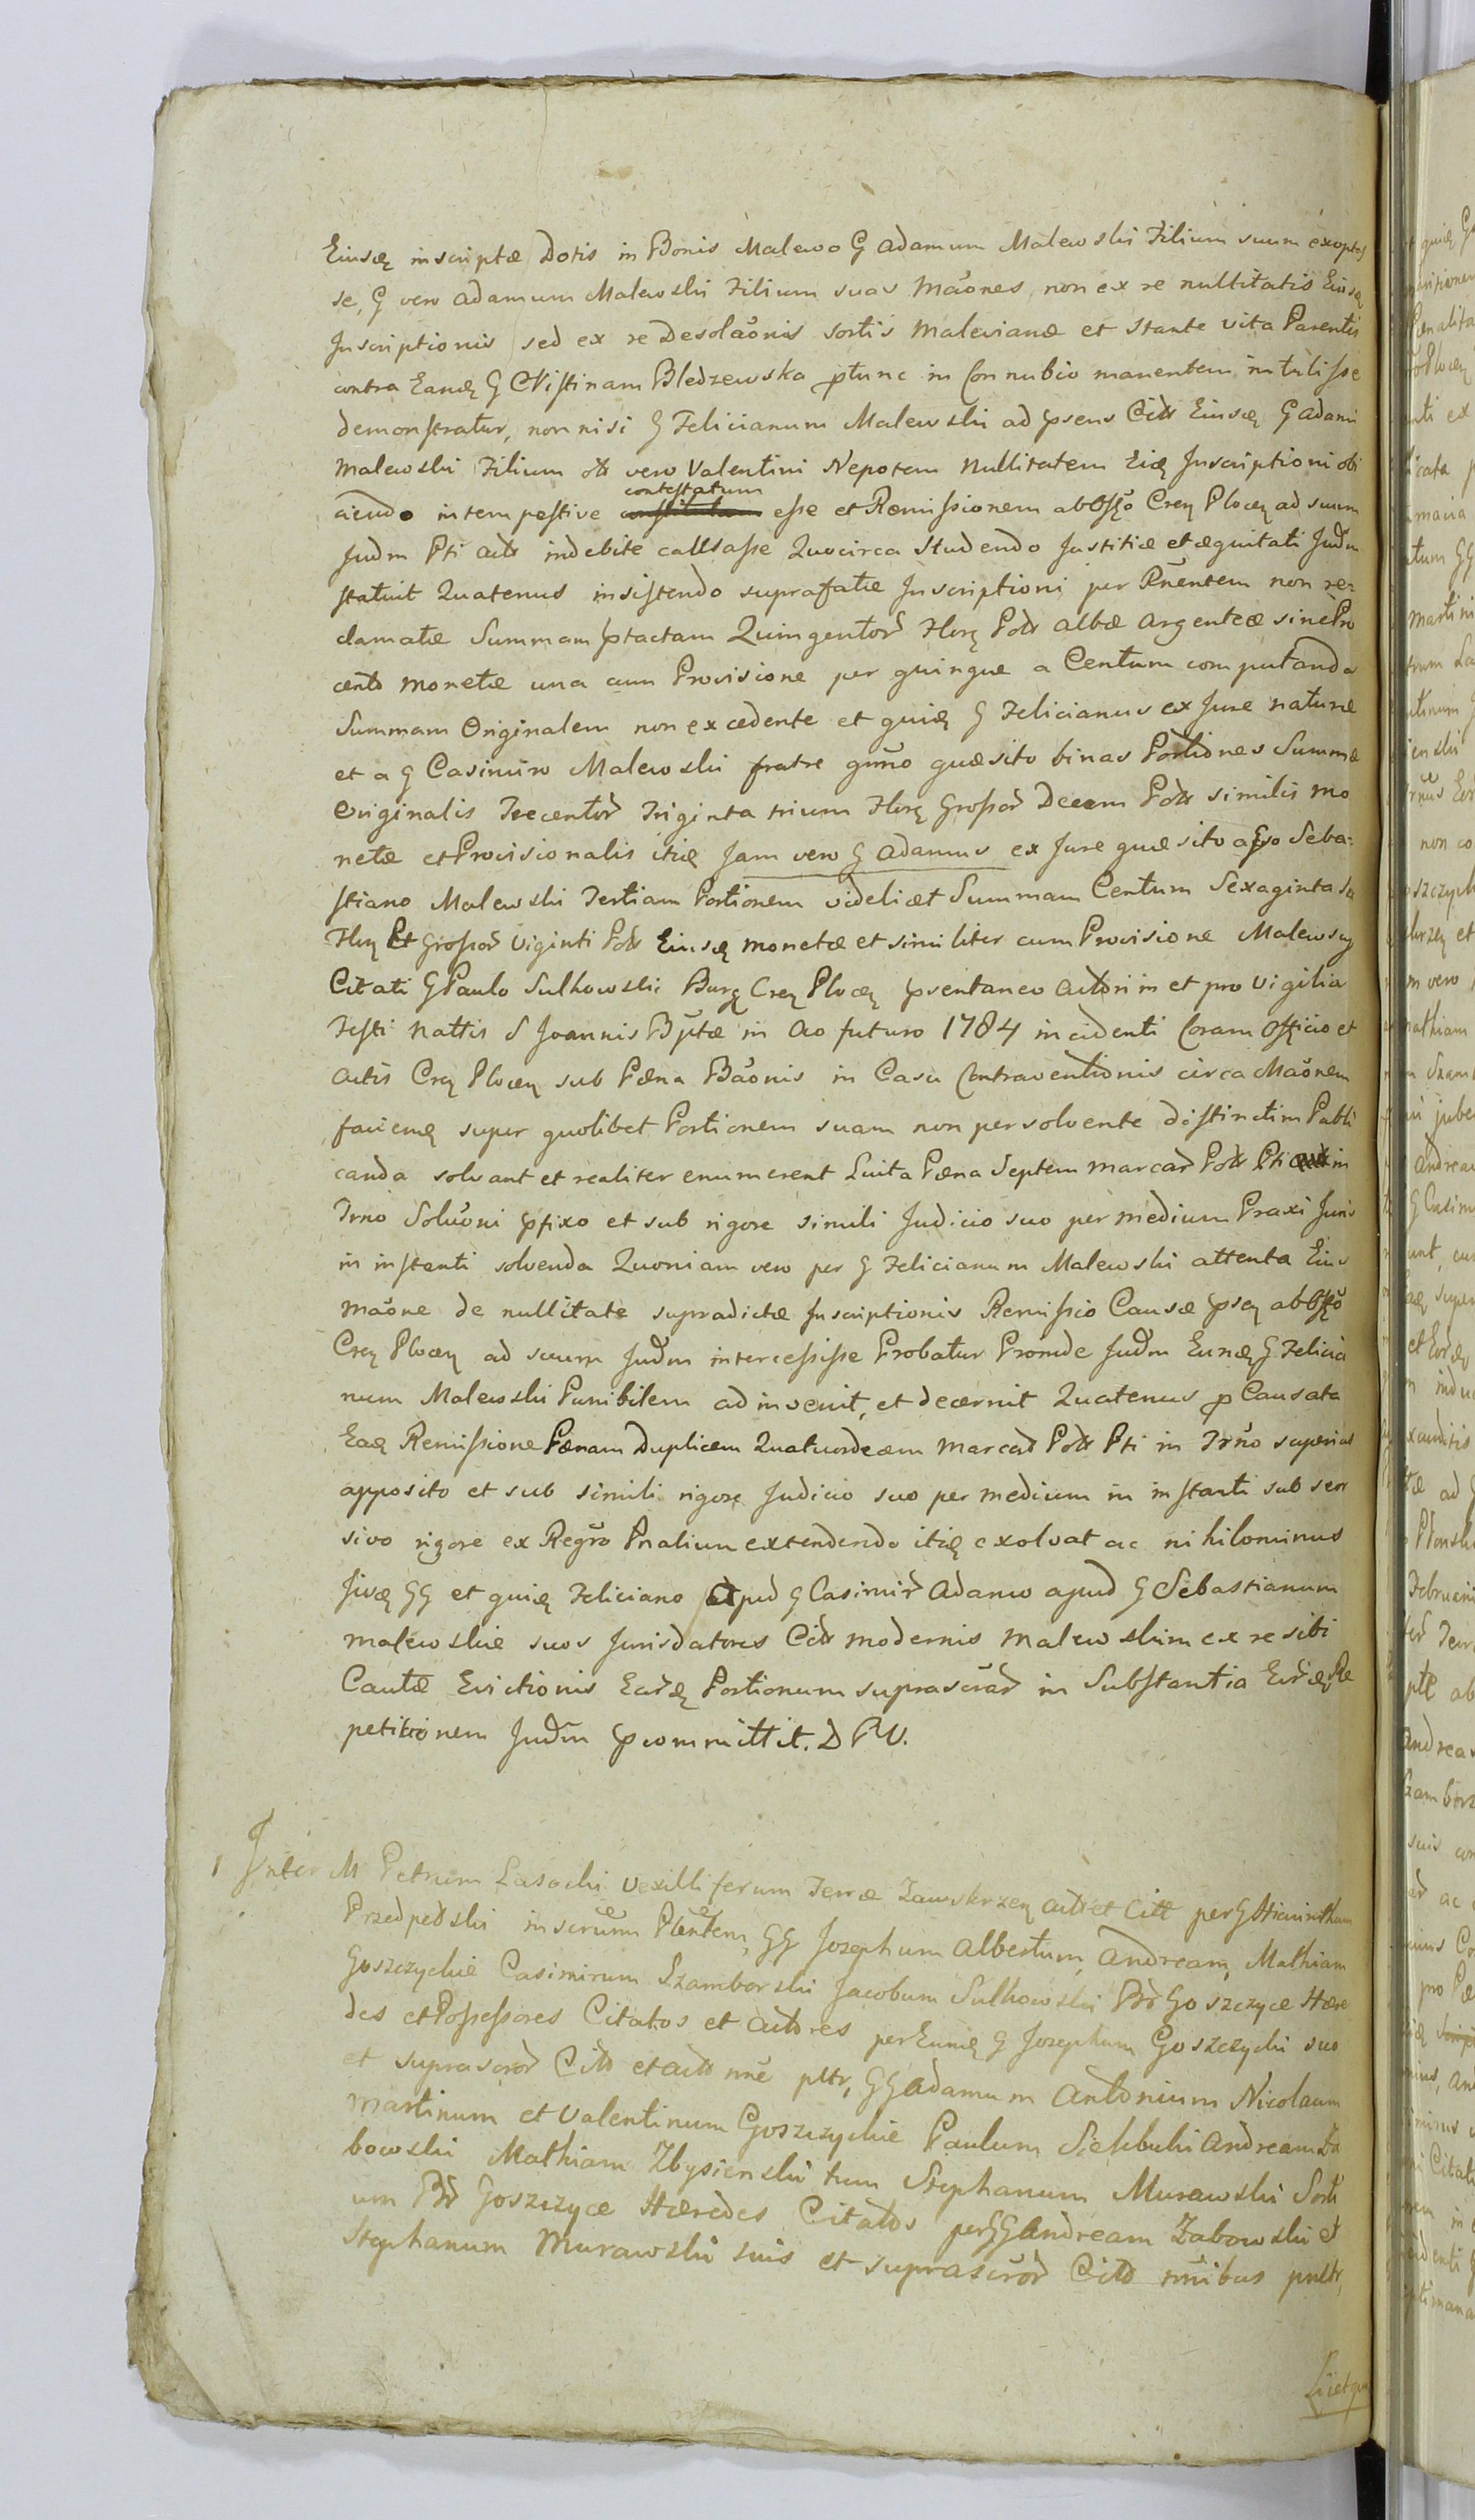 Eiusdę inscriptæ Dotis in Bonis Malewo G Adamum Malewski Filium suum exoptas
se, G vero Adamum Malewski Filium suas Mãones, non ex re nullitatis Eiusdę
Inscriptionis sed ex re Desolãonis sortis Malevianæ et stante vita Parentis
contra Eandę G Christinam Bledzewska ptunc in Connubio manentem intulisse
demonstratur, non nisi G Felicianum Malewski ad psens Citt Eiusdę G Adami
Malewski Filium ott vero Valentini Nepotem Nullitatem Eidę Inscriptioni obi
ciendo intempestive contestatum esse et Remissionem ab Offo Cren Plocen ad suum
Judm Pti actt indebite callsasse Quocirca Studendo Justitiæ et æquitati Judm
statuit Quatenus insistendo suprafatæ Inscriptioni per Pnentem non re=
clamatæ Summam ptactam Quingentor Flory Poll albæ argenteæ sine Pro
cento Monetæ una cum Provisione per quinque a Centum computanda
Summam Originalem non excedente et quidę G Felicianus ex Jure naturæ
et a G Casimiro Malewski fratre gmno quæsito binas Portiones Summæ
Originalis Trecentor Triginta trium Flory Grossor Decem Poll similis mo
netæ et Provisionalis itidę Jam vero G Adamus ex Jure quæsito a Gso Seba=
stiano Malewski Tertiam Portionem videlicet Summam Centum Sexaginta Sex
Flory et Grossor Viginti Poll Eiusdę Monetæ et similiter cum Provisione
Citati G Paulo Sulkowski Burg Cren Plocen psentaneo Actori in et pro Vigilia
Festi Nattis S Joannis Bptæ in Ao futuro 1784 incidenti Coram Officio et
Actis Cren Plocen sub Pæna Bãonis in Casu Contraventionis circa Mãonem
faciendę super quolibet Portionem suam non persolvente distinctim Publi
canda solvant et realiter enumerent Luita Pæna Septem Marcar Poll Pti in
Trno Solũoni pfixo et sub rigore simili Judicio suo per medium Praxi Juris
in instanti solvenda Quoniam vero per G Felicianum Malewski attenta Eius
Mãone de nullitate supradictæ Inscriptionis Remissio Causæ psen ab Offo
Cren Plocen ad suum Judm intercessisse Probatur Proinde Judm Eundę G Felicia
num Malewski Punibilem ad invenit, et decernit Quatenus p Causata
Eadę Remissione Pænam Duplicem Quatuordecem Marcar Poll Pti in Trno superius
apposito et sub simili rigore Judicio suo per medium in instanti sub ser
sivo rigore ex Regro Pnalium extendendo itidę exolvat ac nihilominus
Jisdę GG et quidę Feliciano apud G Casimir Adamo apud G Sebastianum
Malewskie suos Jurisdatores Citt modernis Malewskim ex re sibi
Cautæ Evictionis Eardę Portionum suprascrar in Substantia Eordę Re
petitionem Judm pcommittit. D P V.
1 Inter M Petrum Lasocki Vexilliferum Terræ Zawskrzen Act et Citt per G Hiacinthum
Przedpelski inscrum Plentem, GG Josephum Albertum, Andream, Mathiam
Goszczyckie Casimirum Szamborski Jacobum Sulkowski Bor Goszczyce Hære
des et Possessores Citatos et Actores per Eundę G Josephum Goszczycki suo
et suprascror Citt et Actt nne pltr, GG Adamum Antonium Nicolaum
Martinum et Valentinum Goszczyckie Paulum Andream Za
bowski Mathiam Zbysienski tum Stephanum Murawski Sorti
um Br Goszczyce Hæredes Citatos per GG Andream Zabowski et
Stephanum Murawski suis et suprascror Citt nnibus pnltr,